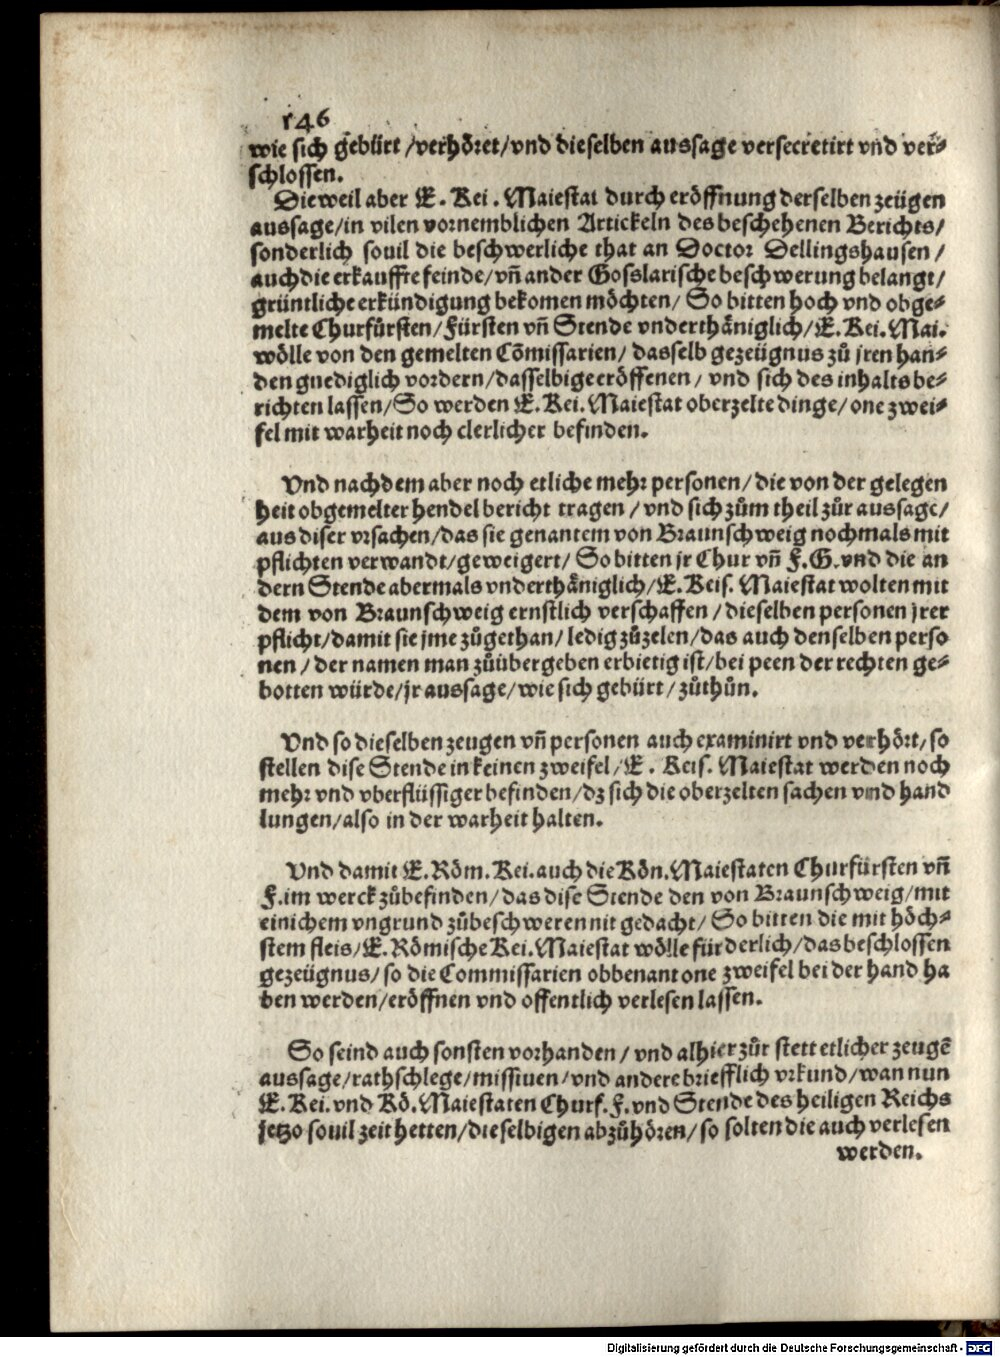 146
wie sich gebürt/verhöret/vnd dieselben aussage versecretirt vnd ver⸗
schlossen.
Dieweil aber E. Kei. Maiestat durch eröffnung derselben zeügen
aussage/in vilen vornemblichen Artickeln des beschehenen Berichts/
sonderlich souil die beschwerliche that an Doctor Dellingshausen/
auch die erkauffte feinde/vñ ander Gosslarische beschwerung belangt/
grüntliche erkündigung bekomen möchten/ So bitten hoch vnd obge⸗
melte Churfürsten/Fürsten vñ Stende vnderthäniglich/E. Kei. Mai.
wölle von den gemelten Cõmissarien/ dasselb gezeügnus zů jren han⸗
den gnediglich vordern/dasselbige eröffenen/ vnd sich des inhalts be⸗
richten lassen/So werden E. Kei. Maiestat oberzelte dinge/one zwei⸗
fel mit warheit noch clerlicher befinden.
Vnd nachdem aber noch etliche mehr personen/die von der gelegen
heit obgemelter hendel bericht tragen/ vnd sich zům theil zůr aussage/
aus diser vrsachen/das sie genantem von Braunschweig nochmals mit
pflichten verwandt/geweigert/ So bitten jr Chur vñ F.G. vnd die an
dern Stende abermals vnderthäniglich/E. Keis. Maiestat wolten mit
dem von Braunschweig ernstlich verschaffen/dieselben personen jrer
pflicht/damit sie jme zůgethan/ledig zůzelen/das auch denselben perso
nen/der namen man zůübergeben erbietig ist/bei peen der rechten ge⸗
botten würde/jr aussage/wie sich gebürt/zůthůn.
Vnd so dieselben zeugen vñ personen auch examinirt vnd verhört/so
stellen dise Stende in keinen zweifel/E. Keis. Maiestat werden noch
mehr vnd vberflüssiger befinden/dz sich die oberzelten sachen vnd hand
lungen/also in der warheit halten.
Vnd damit E. Röm. Kei. auch die Kön. Maiestaten Churfürsten vñ
F. im werck zůbefinden/das dise Stende den von Braunschweig/mit
einichem vngrund zůbeschweren nit gedacht/ So bitten die mit höch⸗
stem fleis/E. Römische Kei. Maiestat wölle fürderlich/das beschlossen
gezeügnus/so die Commissarien obbenant one zweifel bei der hand ha
ben werden/eröffnen vnd offentlich verlesen lassen.
So seind auch sonsten vorhanden/ vnd alhier zůr stett etlicher zeugẽ
aussage/rathschlege/missiuen/vnd andere briefflich vrkund/wan nun
E. Kei. vnd Kö. Maiestaten Churf. F. vnd Stende des heiligen Reichs
jetzo souil zeit hetten/dieselbigen abzůhören/so solten die auch verlesen
werden.
Digitalisierung gefördert durch die Deutsche Forschungsgemeinschaft - DFG